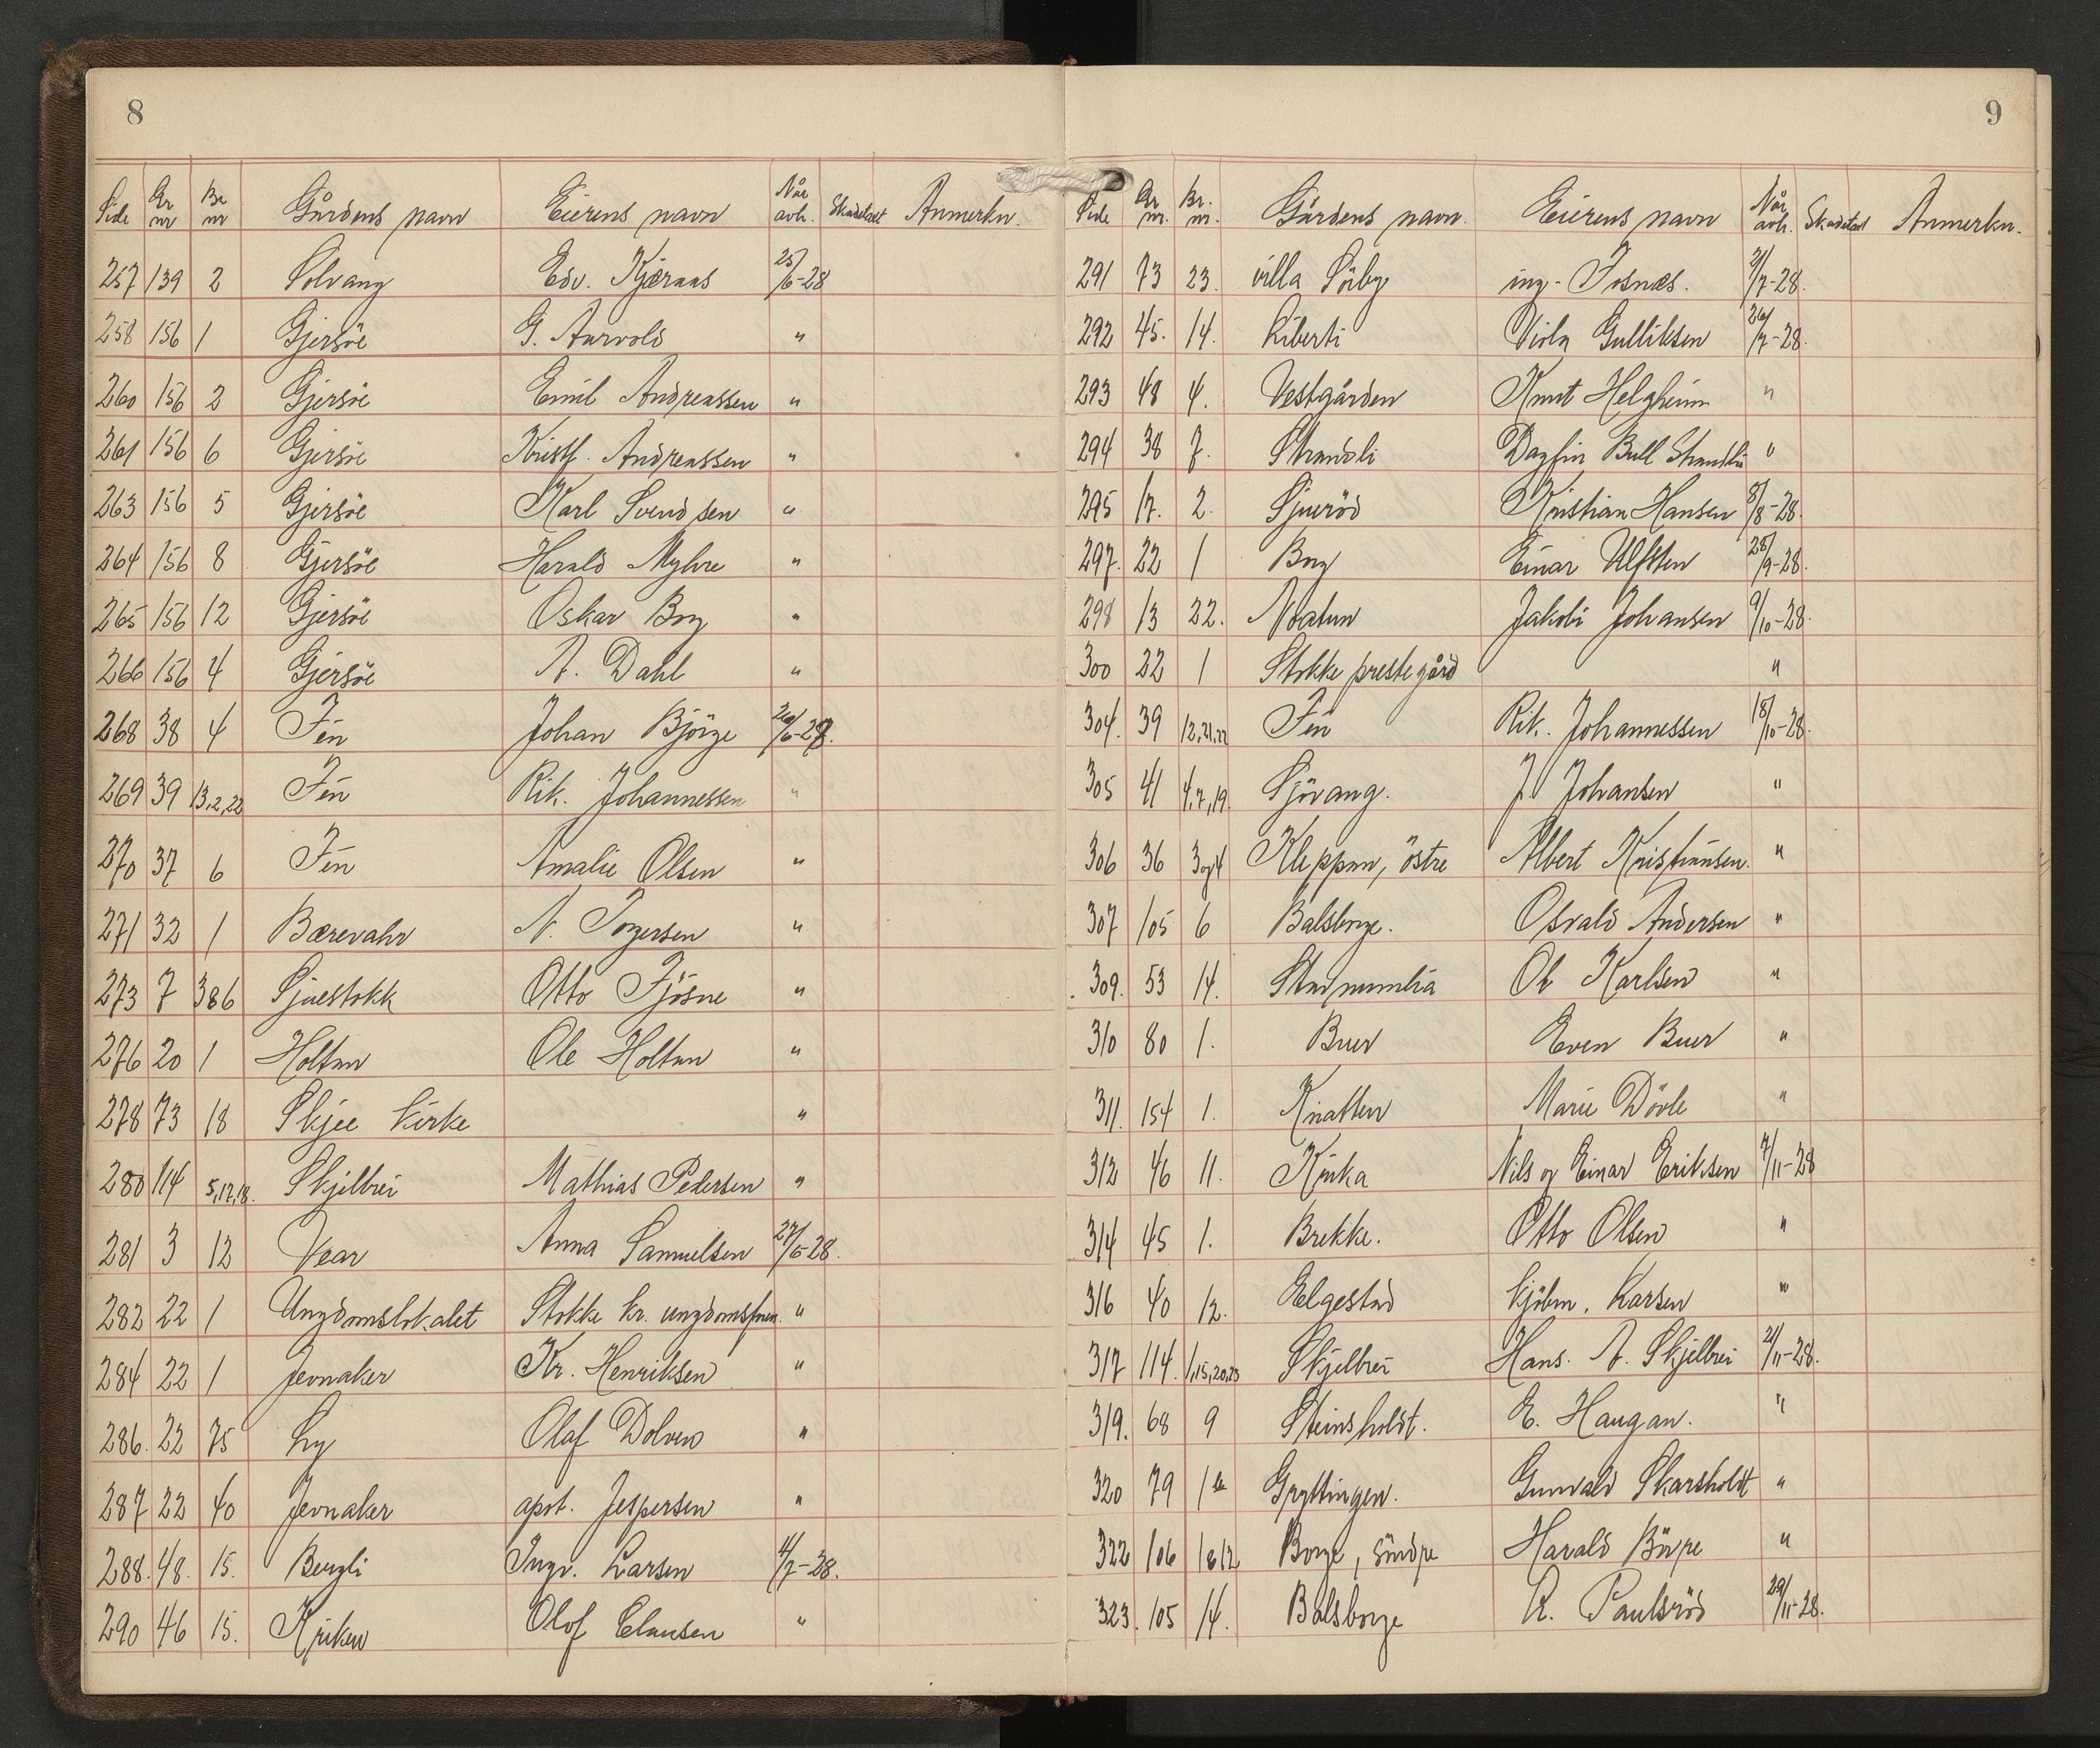 8
Side Gr nr Br nr Gårdens navn Eierens navn Når avh. Skadelset Anmerkn.
257 139 2 Solvang Edv. Kjæraas 25/6-28
258 156 1 Gjersöe G. Aurvold "
260 156 2 Gjersöe Emil Andreassen "
261 156 6 Gjersöe Kristf. Andreassen "
263 156 5 Gjersöe Karl Svendsen "
264 156 8 Gjersöe Harald Myhre "
265 156 12 Gjersöe Oskar Borg "
266 156 4 Gjersöe A. Dahl "
268 38 4 Fèn Johan Bjönge 26/6-28.
269 39 13,2,22 Fèn Rik. Johannessen "
270 37 6 Fèn Amalie Olsen "
271 32 1 Bærevahr N. Torgersen "
273 7 386 Sjuestokk Otto Fjösne "
276 20 1 Holtan Ole Holtan "
278 73 18 Skjee kirke "
280 114 5,17,18. Skjelbrei Mathias Pedersen "
281 3 12 Vear Anna Samuelsen 27/6-28.
282 22 1 Ungdomslokalet Stokke kr. ungdomsforen. "
284 22 1 Jevnaker Kr. Henriksen "
286. 22 75 Ly Olaf Dolven "
287 22 40 Jevnaker apot. Jespersen "
288. 48. 15. Bergli Ingv. Larsen 4/7-28.
290 46 15. Kriken Olof Clausen "
9
Side Gr. nr. Br. nr. Gårdens navn. Eierens navn Når avh. Skadelset Anmerkn.
291 73 23. villa Sörby ing. Fosnæs. 21/7-28.
292 45. 14. Liberti Viola Gulliksen 26/7-28.
293 48 4. Vestgården Knut Helgheim "
294 38 7. Strandli Dagfin Bull Strandli "
295 17. 2. Sjueröd Kristian Hansen 8/8-28.
297. 22 1 Borg Einar Ulfsten 28/9-28.
298 13 22. Noatun Jakob Johansen 9/10-28.
300 22 1 Stokke prestegård "
304. 39 12,21,22 Fèn Rik. Johannessen 18/10-28.
305 41 4,7,19. Sjövang. J. Johansen "
306 36 3 og 4 Kleppan, östre Albert Kristiansen. "
307 105 6 Balsborge. Osvald Andersen "
309. 53 14. Ol Karlsen "
310 80 1. Buer Even Buer "
311. 154 1. Knatten Marie Dövle "
312 46 11. Kinka Nils og Einar Eriksen 7/11-28
314 45 1. Brekke. Otto Olsen "
316 40 12. Elgestad kjöbm. Karsen "
317 114. 1,15,20,23 Skjelbrei Hans. A. Skjelbrei 21/11-28.
319. 68 9 Steinsholdt. E. Haugan. "
320 79 1 Gryttingen. Gunvald Skarsholdt "
322 106 1 & 12 Borge, söndre Harald Börge "
323. 105 14. Balsborge R. Paulsröd 29/11-28.